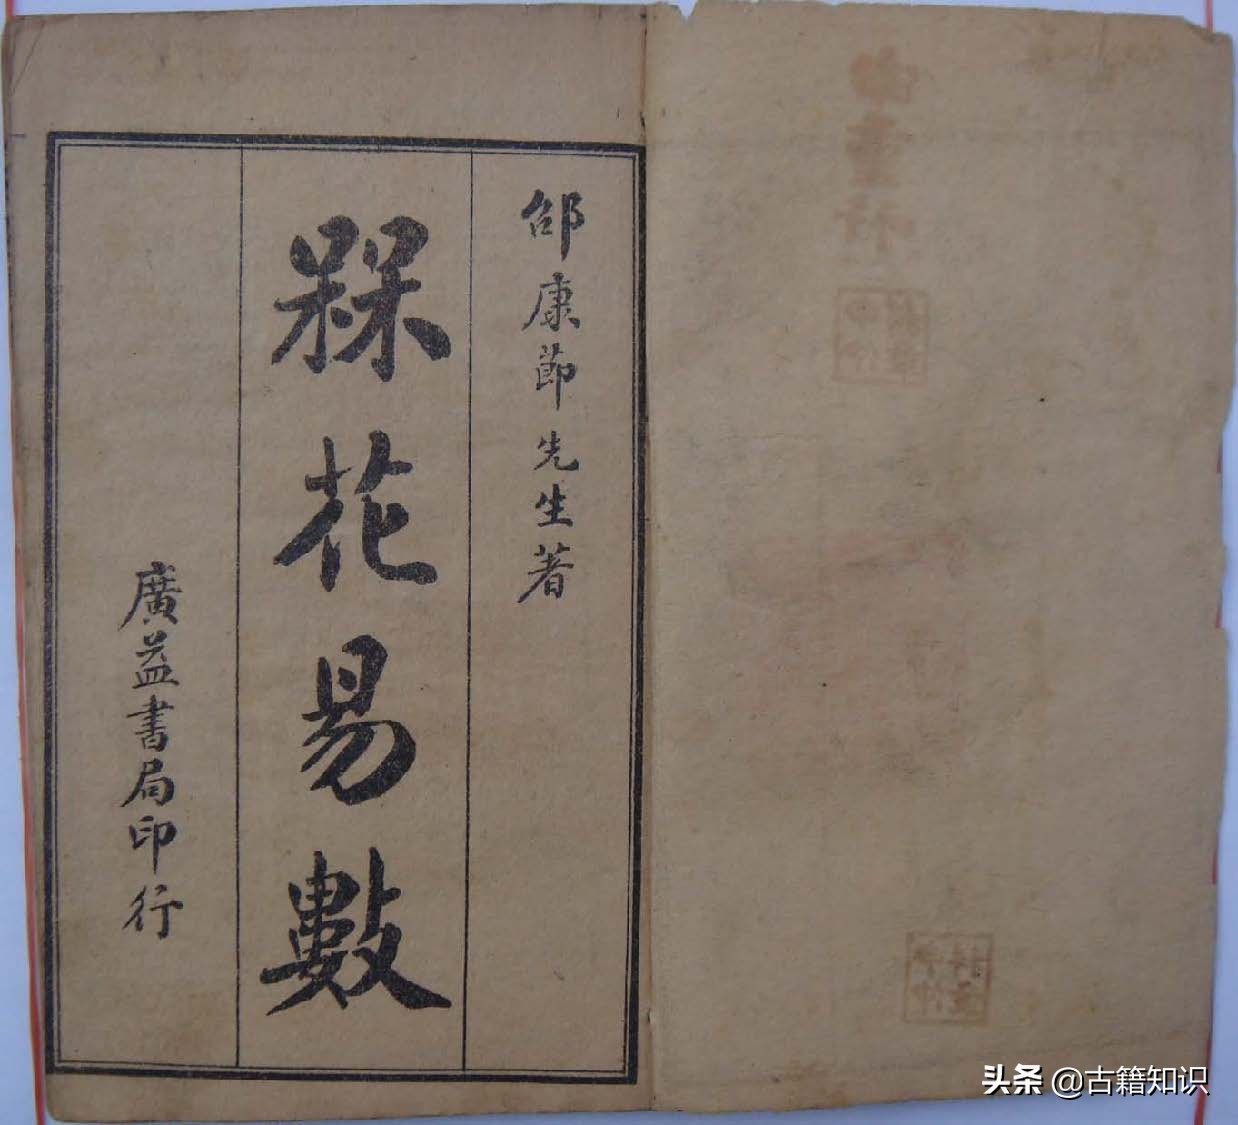 邵康節先生著
槑花易數
廣益書局印行
头条 @古籍知识